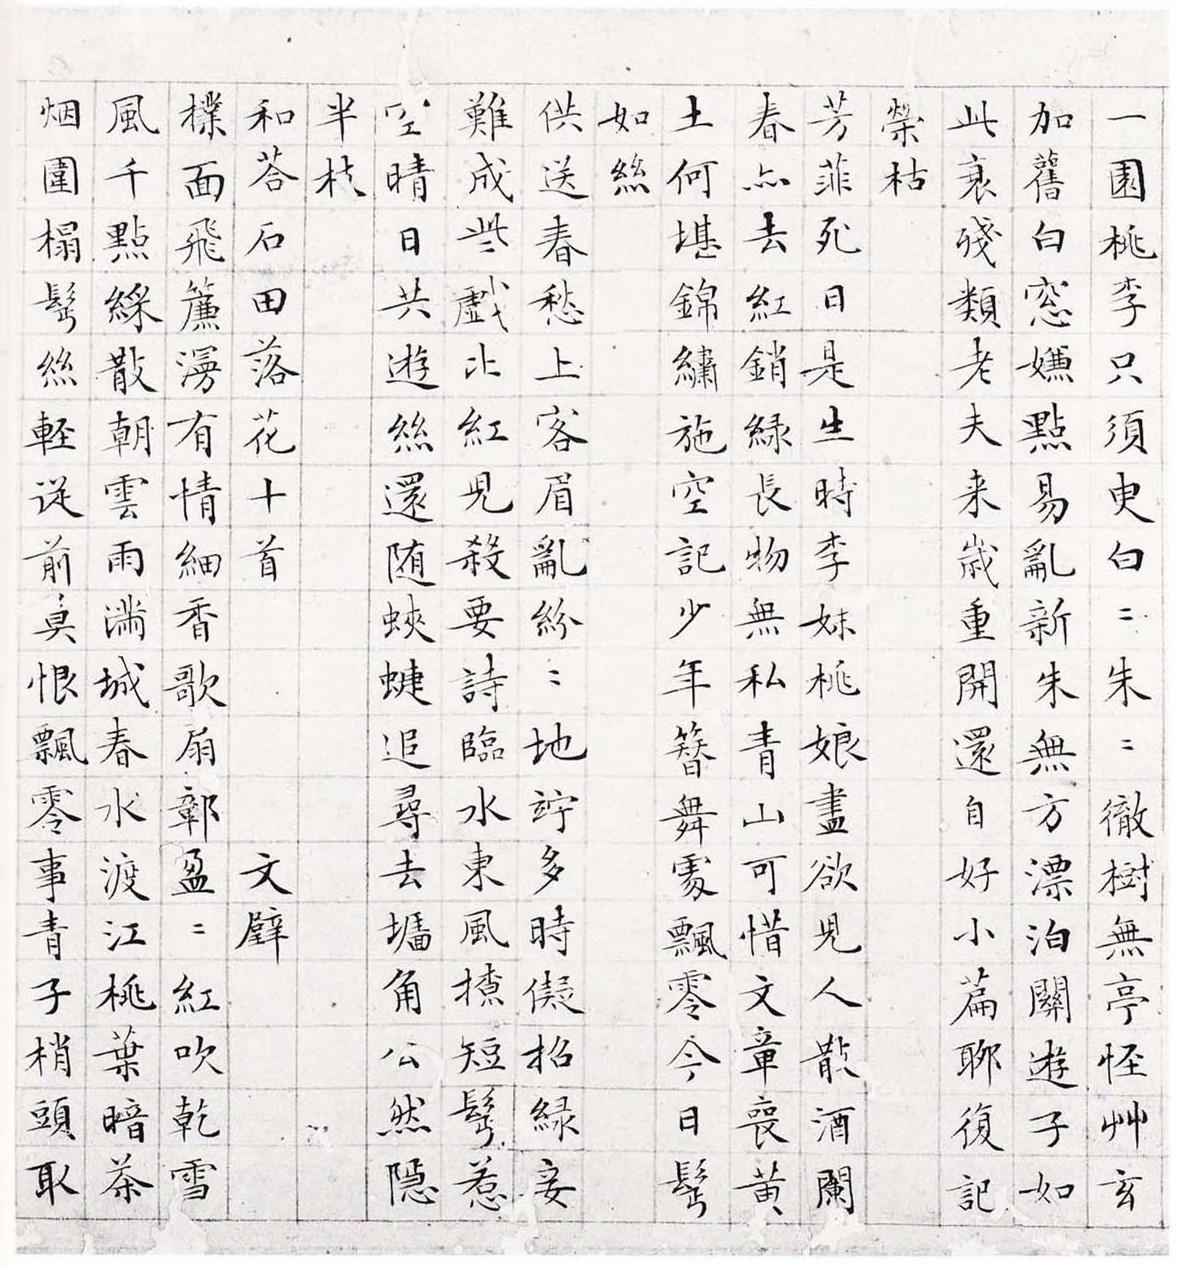 一園桃李只須臾白〻朱〻徹樹無亭怪艸玄
加舊白窓嫌點易亂新朱無方漂泊關遊子如
此衰殘類老夫来歳重開還自好小篇聊復記
榮枯
芳菲死日是生時李妹桃娘盡欲児人散酒闌
春亦去紅銷緑長物無私青山可惜文章喪黄
土何堪錦繡施空記少年簪舞處飄零今日鬂
如絲
供送春愁上客眉亂紛〻地竚多時儗招緑妾
難成些戲比紅児殺要詩臨水東風撩短鬂惹
空晴日共遊絲還随蛺蜨追尋去墻角公然隠
半枝
和荅石田落花十首 文壁
撲面飛簾漫有情細香歌扇鄣盈〻紅吹乾雪
風千點綵散朝雲雨満城春水渡江桃葉暗茶
烟圍榻鬂絲軽従前莫恨飄零事青子梢頭取